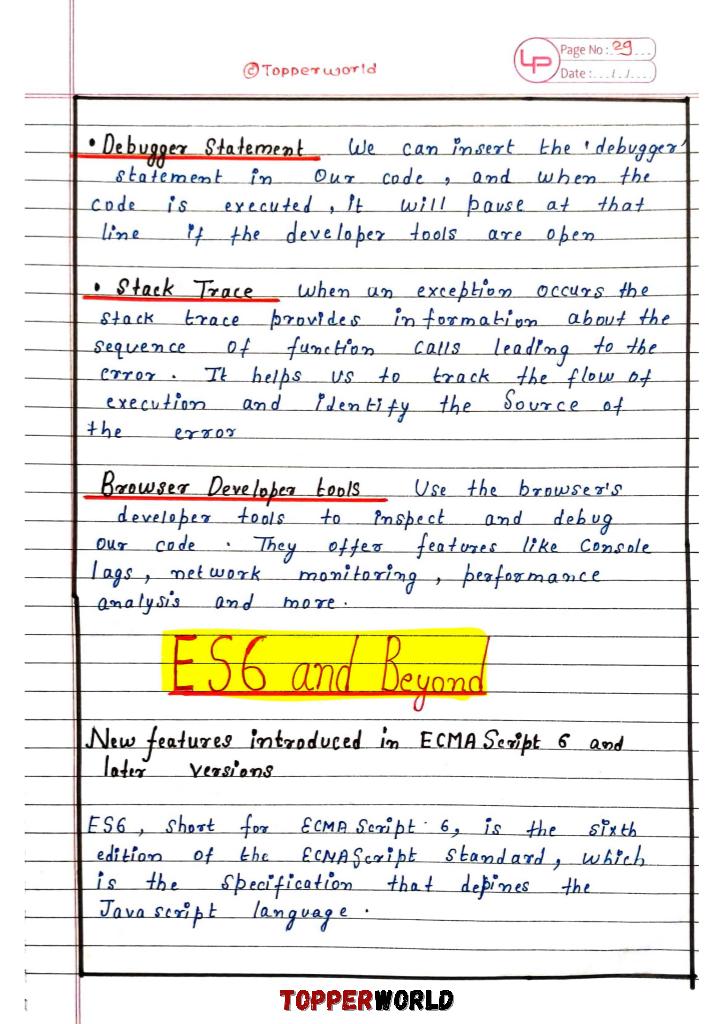 ©Topperworld
LP
Page No: 29
Date: / /
• Debugger Statement We can insert the 'debugger'
statement in our code, and when the
code is executed, it will pause at that
line if the developer tools are open
• Stack Trace When an exception occurs the
stack trace provides information about the
sequence of function calls leading to the
error. It helps us to track the flow of
execution and identify the Source of
the error
Browser Developer tools Use the browser's
developer tools to inspect and debug
our code. They offer features like Console
lags, network monitoring, performance
analysis and more.
ES6 and Beyond
New features introduced in ECMA Script 6 and
later versions
ES6, short for ECMA Script 6, is the sixth
edition of the ECMAScript standard, which
is the specification that defines the
Java script language.
TOPPERWORLD